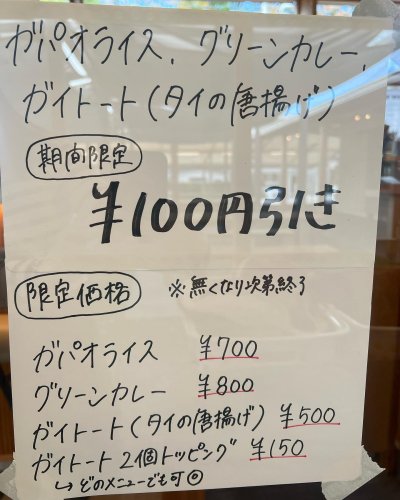 ガパオライス、グリーンカレー、
ガイトート(タイの唐揚げ)
期間限定
¥100円引き
限定価格 ※無くなり次第終了
ガパオライス ¥700
グリーンカレー ¥800
ガイトート(タイの唐揚げ) ¥500
ガイトート2個トッピング ¥150
↳どのメニューでも可◎